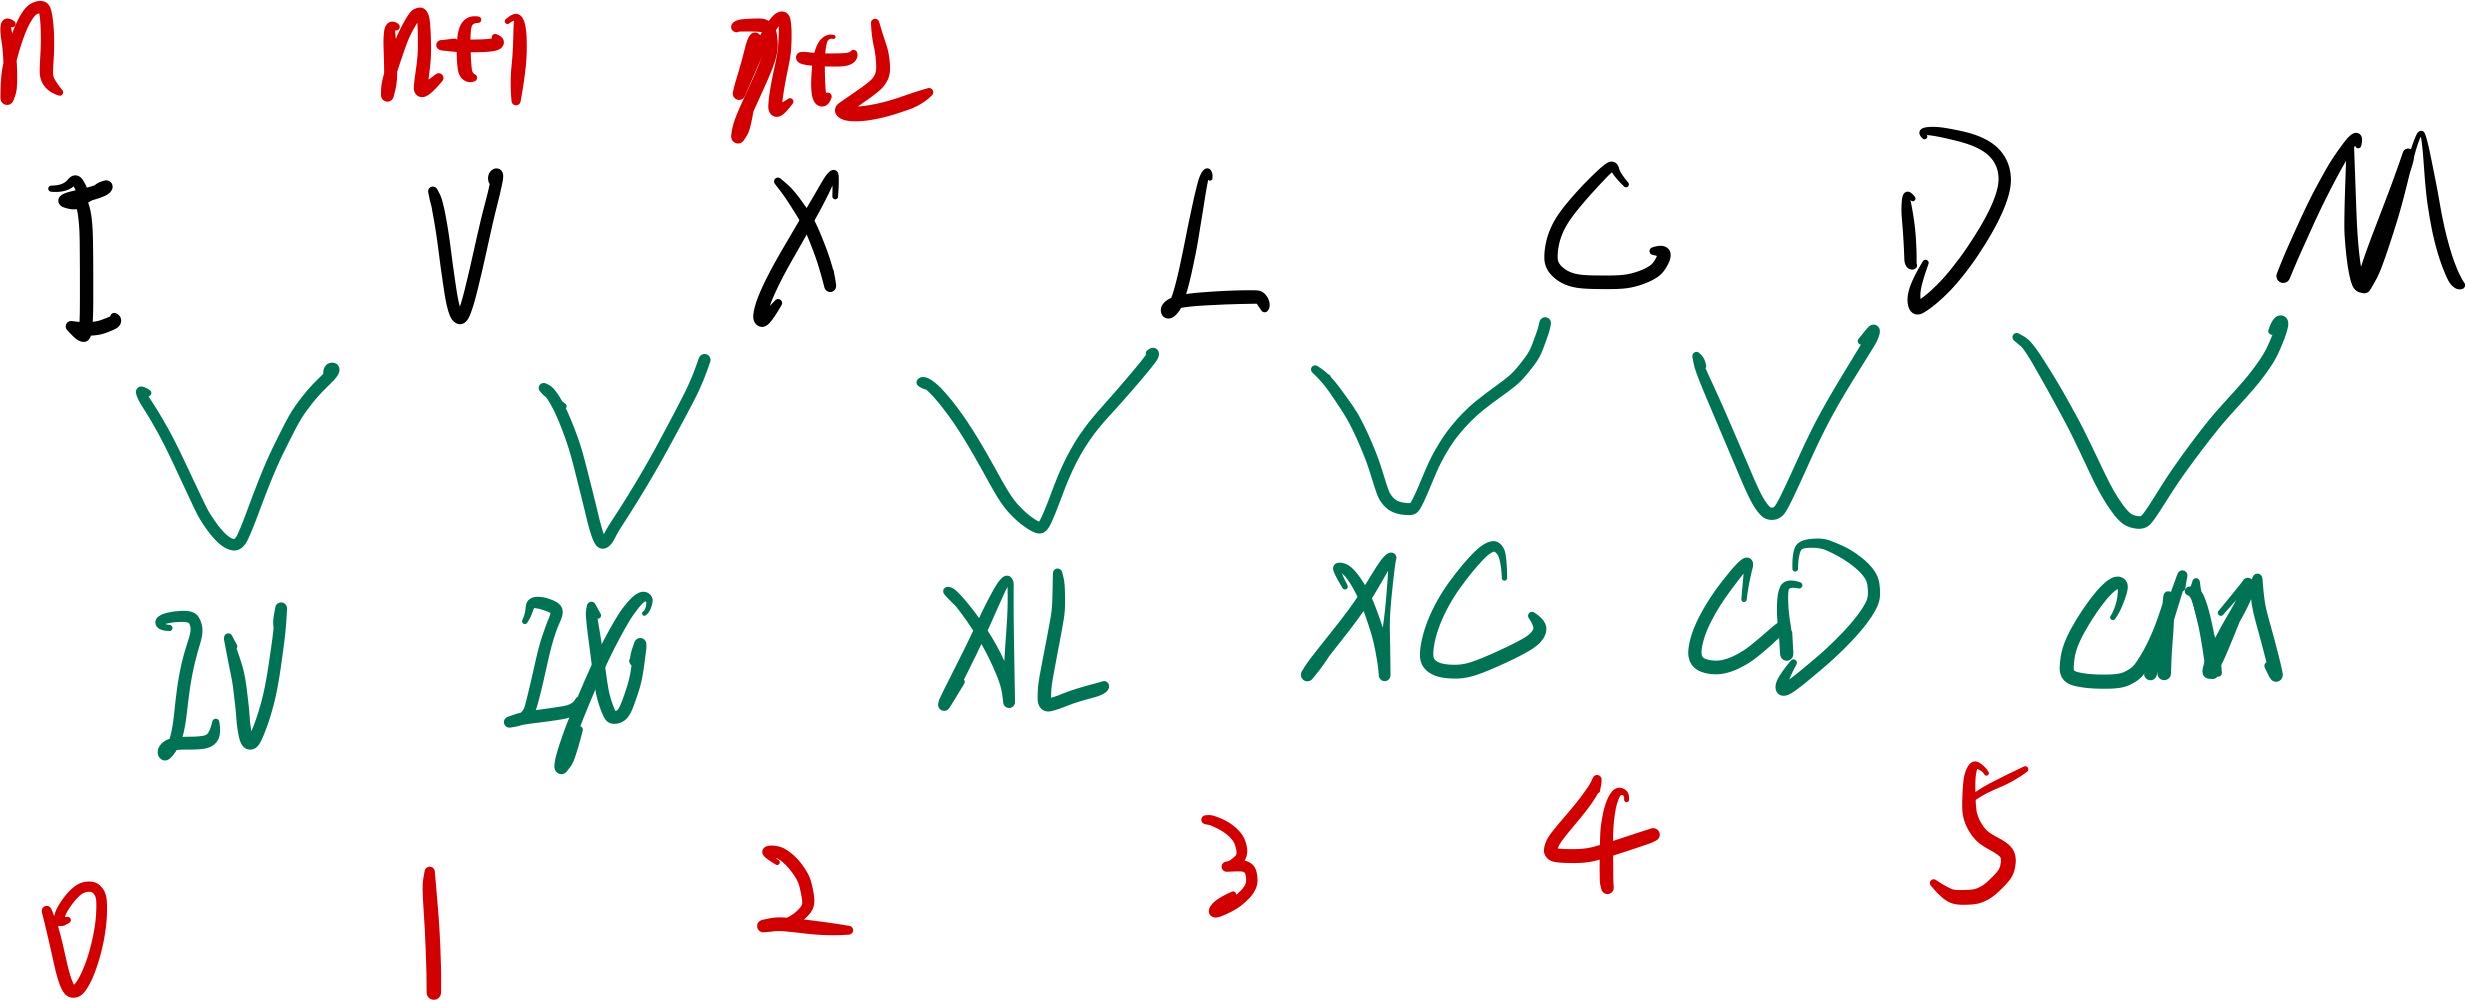 n n+1 n+2
I V X L C D M
IV IX XL XC CD CM
0 1 2 3 4 5